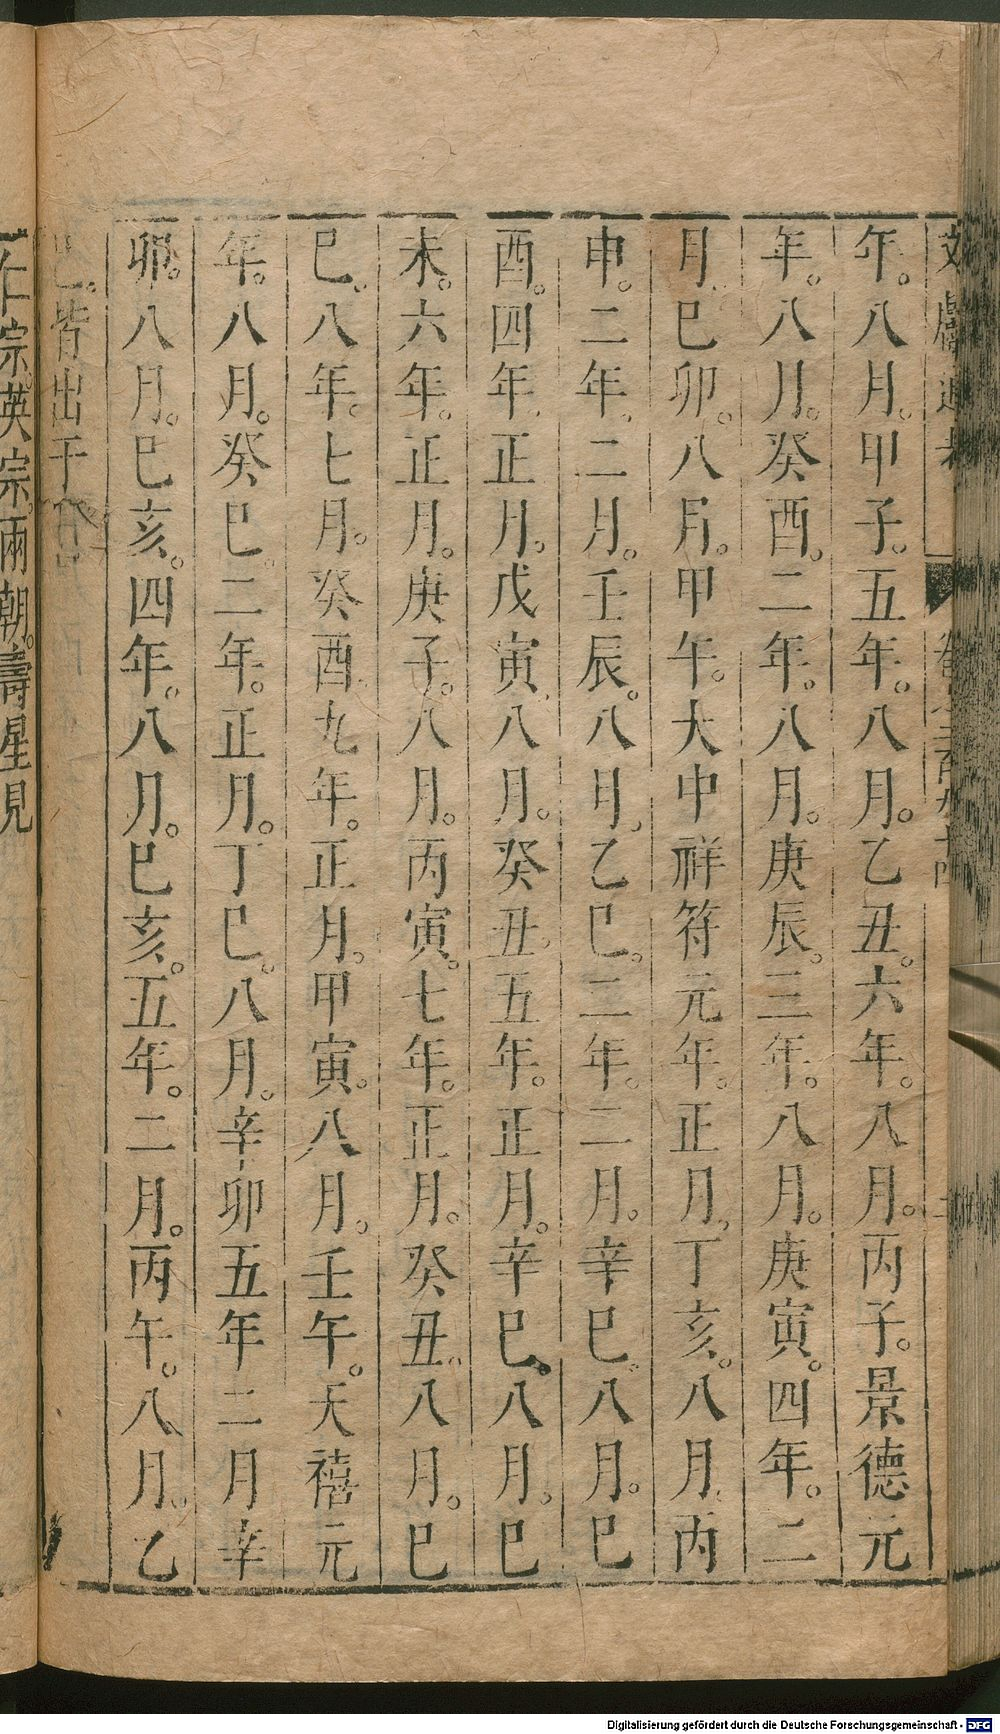 文獻通考
午。八月。甲子。五年。八月。乙丑。六年。八月。丙子。景德元
年。八月。癸酉。二年。八月。庚辰。三年。八月。庚寅。四年。二
月。巳卯。八月。甲午。大中祥符元年。正月。丁亥。八月。丙
申。二年。二月。壬辰。八月。乙巳。三年。二月。辛巳。八月。巳
酉。四年。正月。戊寅。八月。癸丑。五年。正月。辛巳。八月。巳
未。六年。正月。庚子。八月。丙寅。七年。正月。癸丑。八月。巳
巳。八年。七月。癸酉。九年。正月。甲寅。八月。壬午。天禧元
年。八月。癸巳。二年。正月。丁巳。八月。辛卯五年二月辛
卯。八月。巳亥。四年。八月。巳亥。五年。二月。丙午。八月。乙
巳。皆出于
仁宗。英宗。兩朝。壽星見
Digitalisierung gefördert durch die Deutsche Forschungsgemeinschaft - DFG